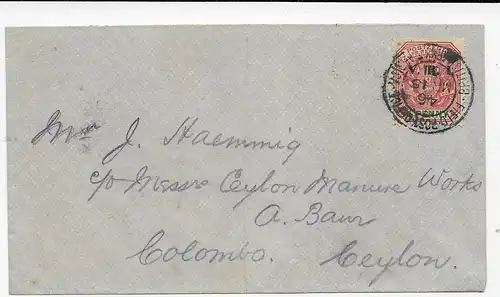 Mrs J. Haemmig
c/o Messrs Ceylon Manure Works
A. Baur
Colombo. Ceylon.